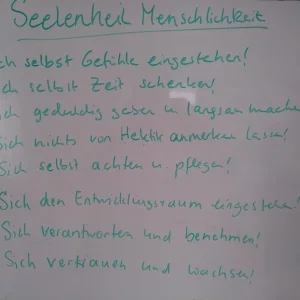 Seelenheil Menschlichkeit
ich selbst Gefühle eingestehen!
ich selbst Zeit schenken!
ich geduldig geben u. langsam mache
Sich nichts von Hektik anmerken lassen!
Sich selbst achten u. pflegen!
Sich den Entwicklungsraum eingestehen!
Sich verantworten und benehmen!
Sich vertrauen und wachsen!